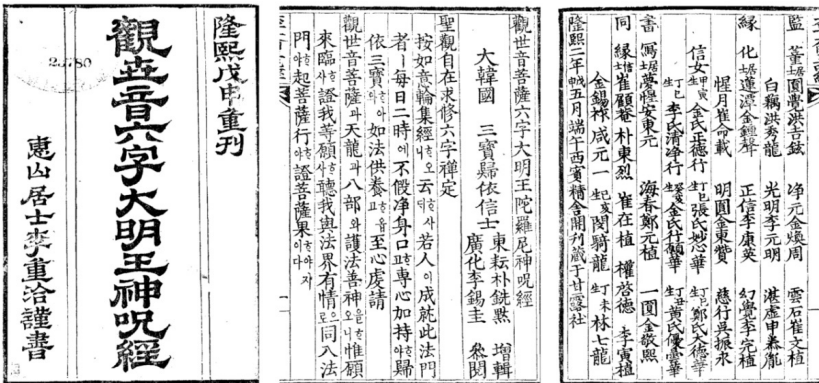 隆熙戊申重刊
觀世音六字大明王神呪經
惠山居士李重洽謹書
觀世音菩薩六字大明王陀羅尼神呪經
大韓國 三寶歸依信士 東耘朴銑默 增輯
廣化李錫圭 參閱
聖觀自在求修六字禪定
按如意輪集經ᄒᆞ니云ᄒᆞ사若人이成就此法門
者ㅣ每日二時에不假淨身口ᄒᆞ고專心加持ᄒᆞ야歸
依三寶ᄒᆞ야如法供養ᄒᆞ며至心虔請
觀世音菩薩과天龍과八部와護法善神을ᄒᆞ오니惟願
來臨ᄒᆞ사證我等願ᄒᆞ사聽我與法界有情으로同入法
門ᄒᆞ야起菩薩行ᄒᆞ야證菩薩果ᄒᆞ야지이다
監董居士圓覺洪吉鉉 淨元金煥周 雲石崔文植
白藕洪秀龍 光明李元明 湛虛申泰胤
緣化居士蓮潭金鍾聲 正信李康英 幻覺李完植
惺月崔命載 明圓金東贊 慈行吳振永
信女甲寅生金氏正德行 丁巳生張氏妙心華 丁巳生鄭氏大德華
丁巳生李氏淸淨行 癸亥生金氏什願華 丁丑生黃氏優曇華
書寫居士夢惺安東元 海春鄭元植 一圓金敬熙
同緣信士崔顧菴 朴東烈 崔在植 權啓德 李寅植
金錫 咸元一 乙亥生閔騎龍 丁未生林七龍
隆熙二年戊申五月端午西賓精舍開刊藏于甘露社